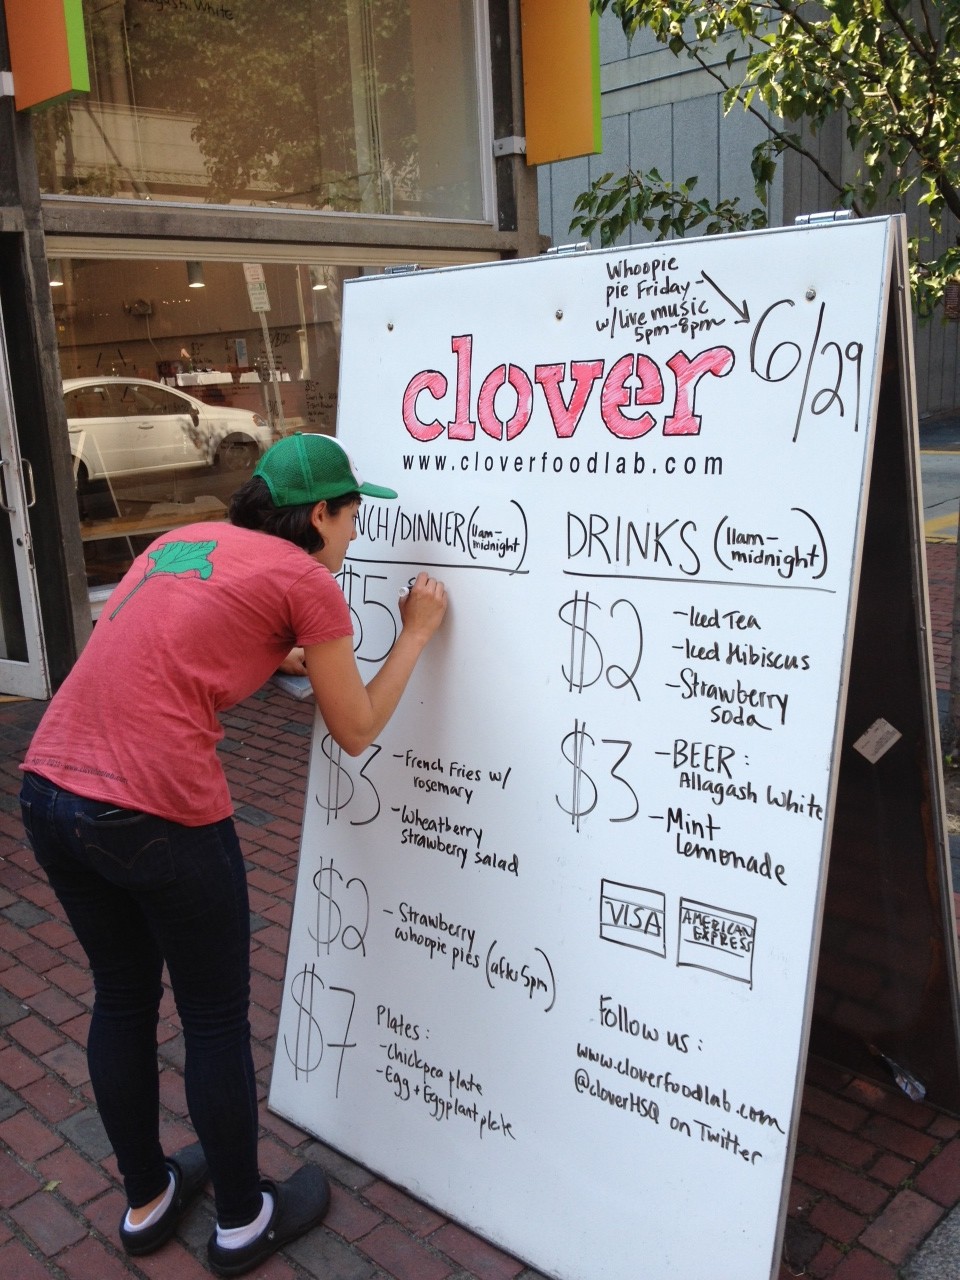 Whoopie
pie Friday-
w/live music
5pm-8pm
6/29
clover
www.cloverfoodlab.com
NCH/DINNER (11am-
midnight)
$5
$3
-French Fries w/
rosemary
-Wheatberry
strawberry salad
$2
-Strawberry
whoopie pies (after 5pm)
$7
Plates:
-Chickpea plate
-Egg + Eggplant plate
DRINKS (11am-
midnight)
$2
-Iced Tea
-Iced Hibiscus
-Strawberry
soda
$3
-BEER:
Allagash White
-Mint
Lemonade
VISA
AMERICAN
EXPRESS
Follow us:
www.cloverfoodlab.com
@cloverHSQ on Twitter
Allagash White